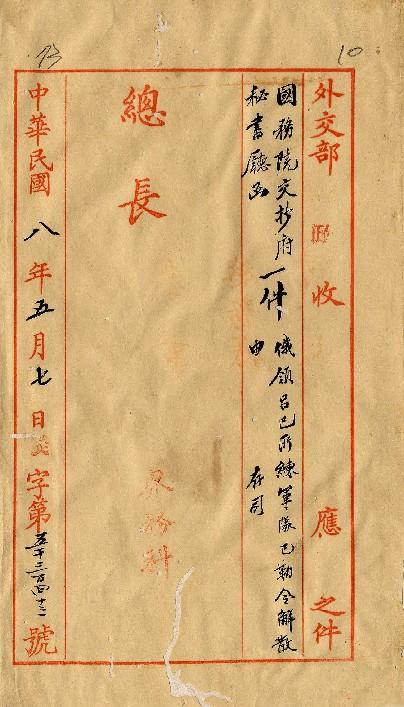 10
外交部 收 應 之件
國務院交抄府
秘書廳函
一件
俄領呂巴所練軍隊已勒令解散
由 存司
總長
界務科
中華民國八年五月七日 字第五千三百四十二號